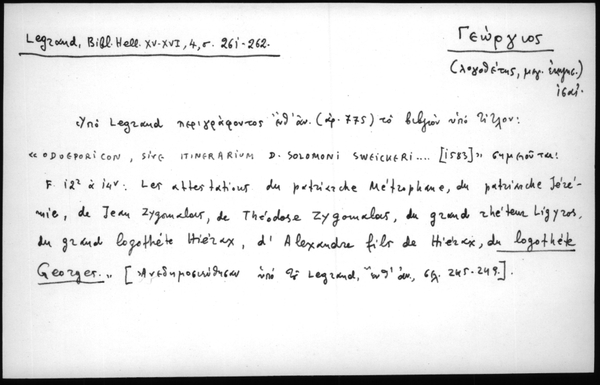 Legrand, Bibl. Hell. XV-XVI, 4, σ. 261-262.
Γεώργιος
(λογοθέτης, μεγ. ἐκκλησ.)
ις΄ αἰ.
Ὑπὸ Legrand περιγράφοντος ἔνθ' ἀν. (ἀρ. 775) τὸ βιβλίον ὑπὸ τίτλον:
« ODOEPORICON, SIVE ITINERARIUM D. SOLOMONI SWEICKERI.... [1583]» σημειοῦται:
F. i2² à i4v: Les attestations du patriarche Métrophane, du patriarche Jéré-
mie, de Jean Zygomalas, de Théodose Zygomalas, du grand rhéteur Ligyros,
du grand logothéte Hiérax, d'Alexandre fils de Hiérax, du logothéte
Georges.,, [Ἀνεδημοσιεύθησαν ὑπὸ τοῦ Legrand, ἔνθ' ἀν., σελ. 245-249.].